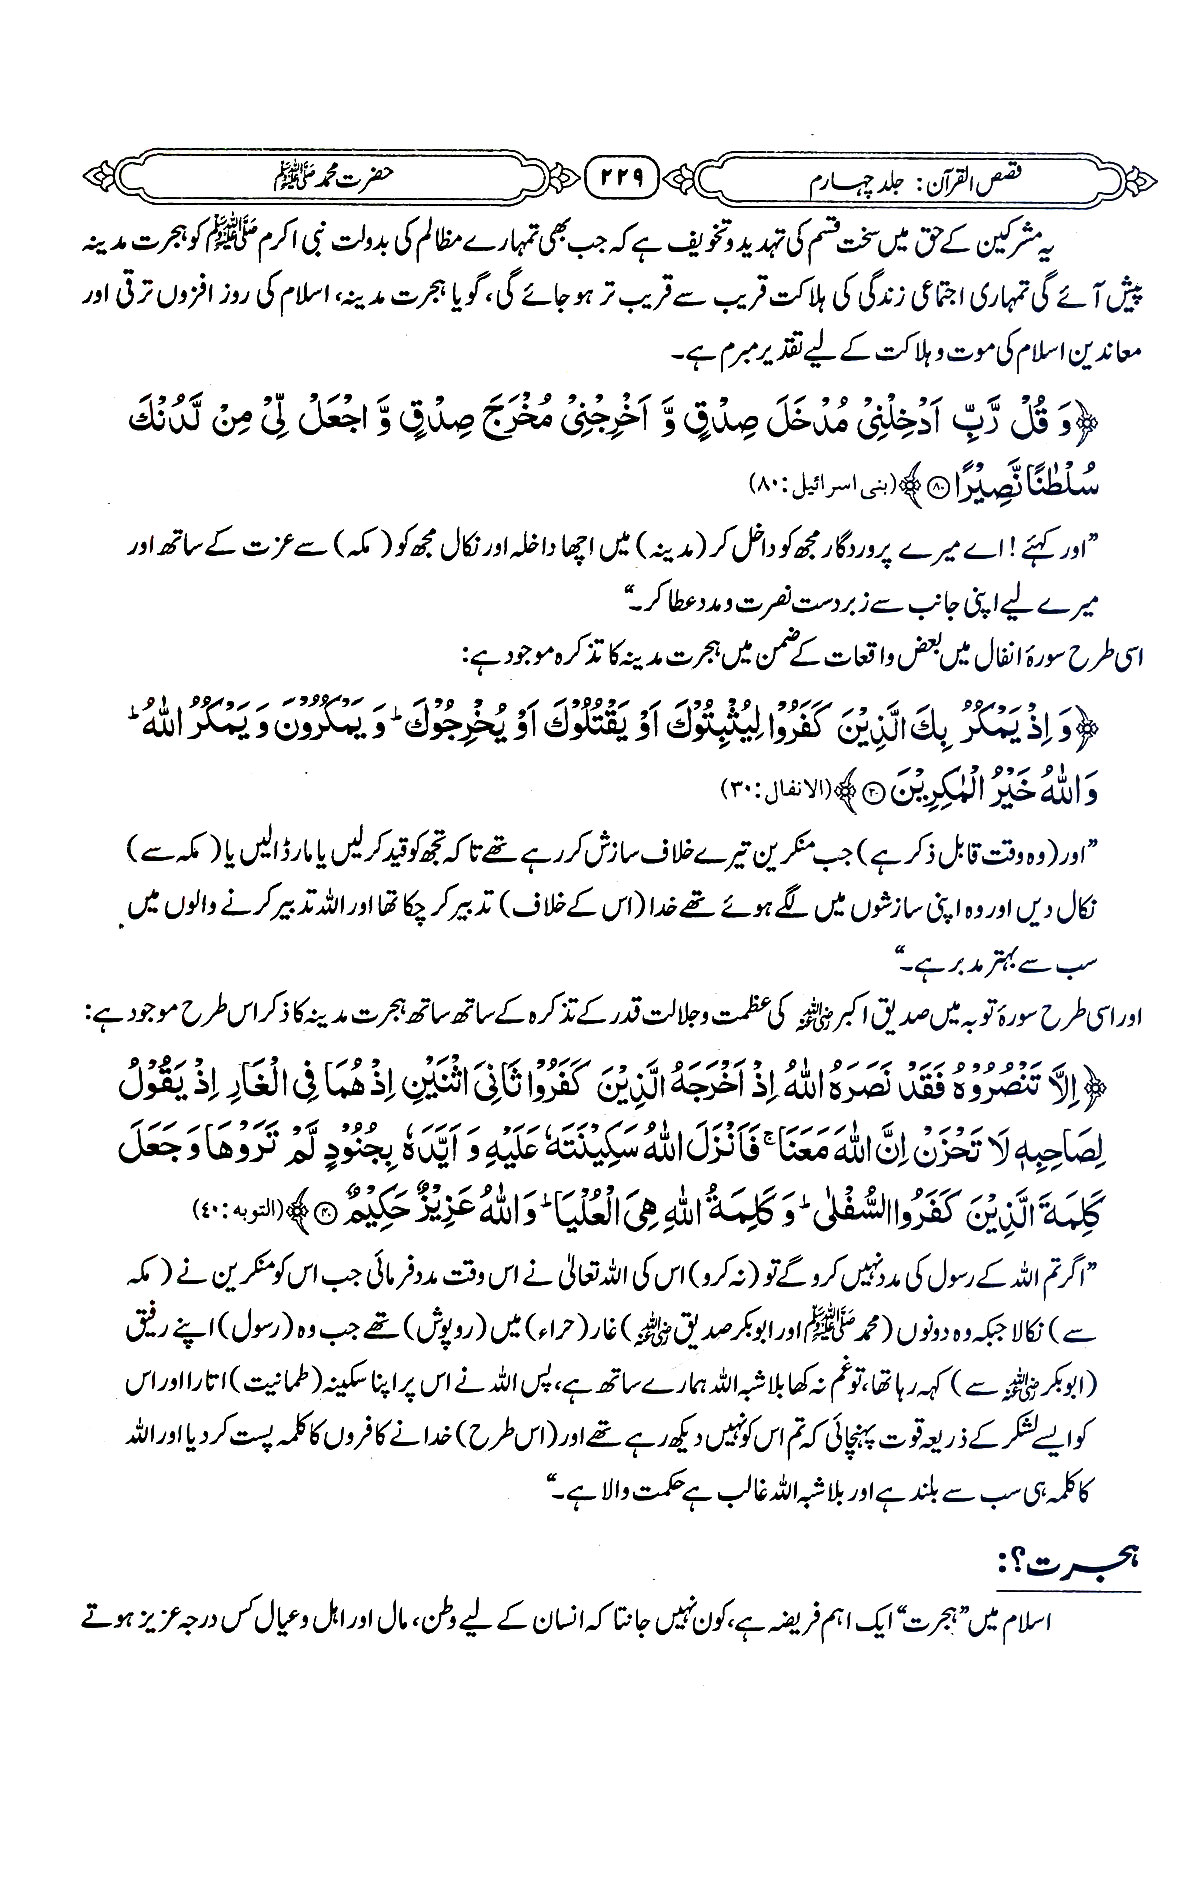 قصص القرآن: جلد چہارم ۲۲۹ حضرت محمد ﷺ
یہ مشرکین کے حق میں سخت قسم کی تہدید و تخویف ہے کہ جب بھی تمہارے مظالم کی بدولت نبی اکرم ﷺ کو ہجرت مدینہ
پیش آئے گی تمہاری اجتماعی زندگی کی ہلاکت قریب سے قریب تر ہو جائے گی، گویا ہجرت مدینہ، اسلام کی روز افزوں ترقی اور
معاندین اسلام کی موت و ہلاکت کے لیے تقدیر مبرم ہے۔
﴿وَ قُلْ رَّبِّ اَدْخِلْنِیْ مُدْخَلَ صِدْقٍ وَّ اَخْرِجْنِیْ مُخْرَجَ صِدْقٍ وَّ اجْعَلْ لِّیْ مِنْ لَّدُنْكَ
سُلْطٰنًا نَّصِیْرًا ۝۸۰﴾ (بنی اسرائیل: ۸۰)
”اور کہئے! اے میرے پروردگار مجھ کو داخل کر (مدینہ) میں اچھا داخلہ اور نکال مجھ کو (مکہ) سے عزت کے ساتھ اور
میرے لیے اپنی جانب سے زبردست نصرت و مدد عطا کر۔“
اسی طرح سورۂ انفال میں بعض واقعات کے ضمن میں ہجرت مدینہ کا تذکرہ موجود ہے:
﴿وَ اِذْ یَمْكُرُ بِكَ الَّذِیْنَ كَفَرُوْا لِیُثْبِتُوْكَ اَوْ یَقْتُلُوْكَ اَوْ یُخْرِجُوْكَ ؕ وَ یَمْكُرُوْنَ وَ یَمْكُرُ اللّٰهُ ؕ
وَ اللّٰهُ خَیْرُ الْمٰكِرِیْنَ ۝۳۰﴾ (الانفال: ۳۰)
”اور (وہ وقت قابل ذکر ہے) جب منکرین تیرے خلاف سازش کر رہے تھے تاکہ تجھ کو قید کر لیں یا مار ڈالیں یا (مکہ سے)
نکال دیں اور وہ اپنی سازشوں میں لگے ہوئے تھے خدا (اس کے خلاف) تدبیر کر چکا تھا اور اللہ تدبیر کرنے والوں میں
سب سے بہتر مدبر ہے۔“
اور اسی طرح سورۂ توبہ میں صدیق اکبر رضی اللہ عنہ کی عظمت و جلالت قدر کے تذکرہ کے ساتھ ساتھ ہجرت مدینہ کا ذکر اس طرح موجود ہے:
﴿اِلَّا تَنْصُرُوْهُ فَقَدْ نَصَرَهُ اللّٰهُ اِذْ اَخْرَجَهُ الَّذِیْنَ كَفَرُوْا ثَانِیَ اثْنَیْنِ اِذْ هُمَا فِی الْغَارِ اِذْ یَقُوْلُ
لِصَاحِبِهٖ لَا تَحْزَنْ اِنَّ اللّٰهَ مَعَنَا ۚ فَاَنْزَلَ اللّٰهُ سَكِیْنَتَهٗ عَلَیْهِ وَ اَیَّدَهٗ بِجُنُوْدٍ لَّمْ تَرَوْهَا وَ جَعَلَ
كَلِمَةَ الَّذِیْنَ كَفَرُوا السُّفْلٰی ؕ وَ كَلِمَةُ اللّٰهِ هِیَ الْعُلْیَا ؕ وَ اللّٰهُ عَزِیْزٌ حَكِیْمٌ ۝۴۰﴾ (التوبہ: ۴۰)
”اگر تم اللہ کے رسول کی مدد نہیں کرو گے تو (نہ کرو) اس کی اللہ تعالیٰ نے اس وقت مدد فرمائی جب اس کو منکرین نے (مکہ
سے) نکالا جبکہ وہ دونوں (محمد ﷺ اور ابوبکر صدیق رضی اللہ عنہ) غار (حراء) میں (روپوش) تھے جب وہ (رسول) اپنے رفیق
(ابوبکر رضی اللہ عنہ سے) کہہ رہا تھا، تو غم نہ کھا بلا شبہ اللہ ہمارے ساتھ ہے، پس اللہ نے اس پر اپنا سکینہ (طمانیت) اتارا اور اس
کو ایسے لشکر کے ذریعہ قوت پہنچائی کہ تم اس کو نہیں دیکھ رہے تھے اور (اس طرح) خدا نے کافروں کا کلمہ پست کر دیا اور اللہ
کا کلمہ ہی سب سے بلند ہے اور بلا شبہ اللہ غالب ہے حکمت والا ہے۔“
ہجرت؟:
اسلام میں ”ہجرت“ ایک اہم فریضہ ہے، کون نہیں جانتا کہ انسان کے لیے وطن، مال اور اہل و عیال کس درجہ عزیز ہوتے